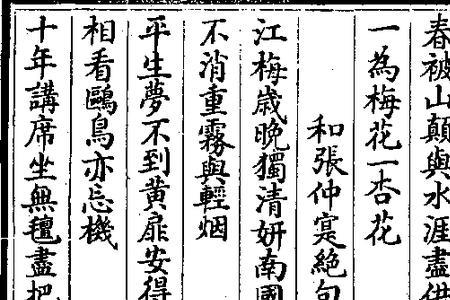 春被山顛與水涯盡供
一為梅花一杏花
和張仲寔絶句
江梅歳晩獨清妍南國
不消重霧與輕烟
平生夢不到黄扉安得
相看鷗鳥亦忘機
十年講席坐無氊盡把